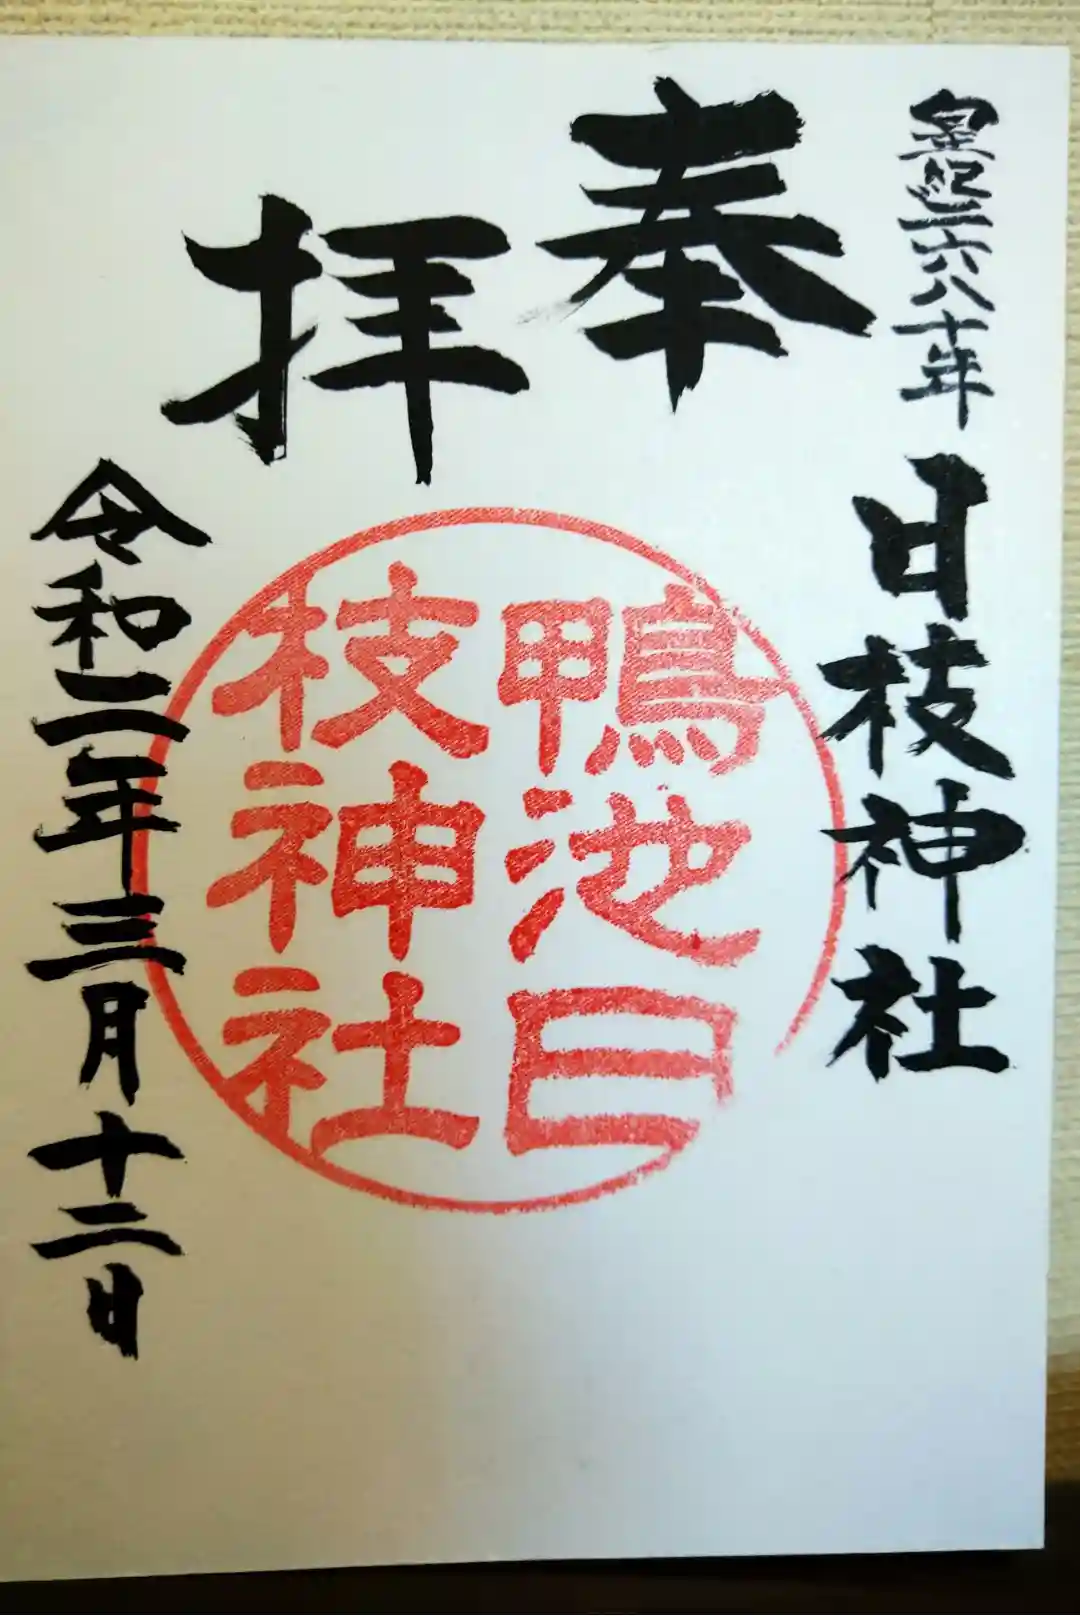 皇紀二六八十年
日枝神社
奉拝
鴨池日
枝神社
令和二年三月十二日